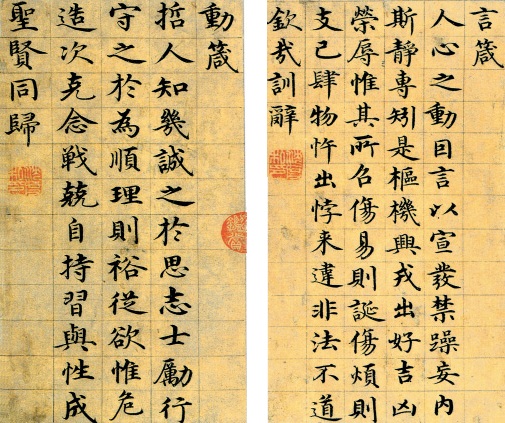 言箴
人心之動因言以宣發禁躁妄内
斯靜專矧是樞機興戎出好吉凶
榮辱惟其所召傷易則誕傷煩則
支己肆物忤出悖来違非法不道
欽哉訓辭
動箴
哲人知幾誠之於思志士勵行
守之於為順理則裕從欲惟危
造次克念戦兢自持習與性成
聖賢同歸